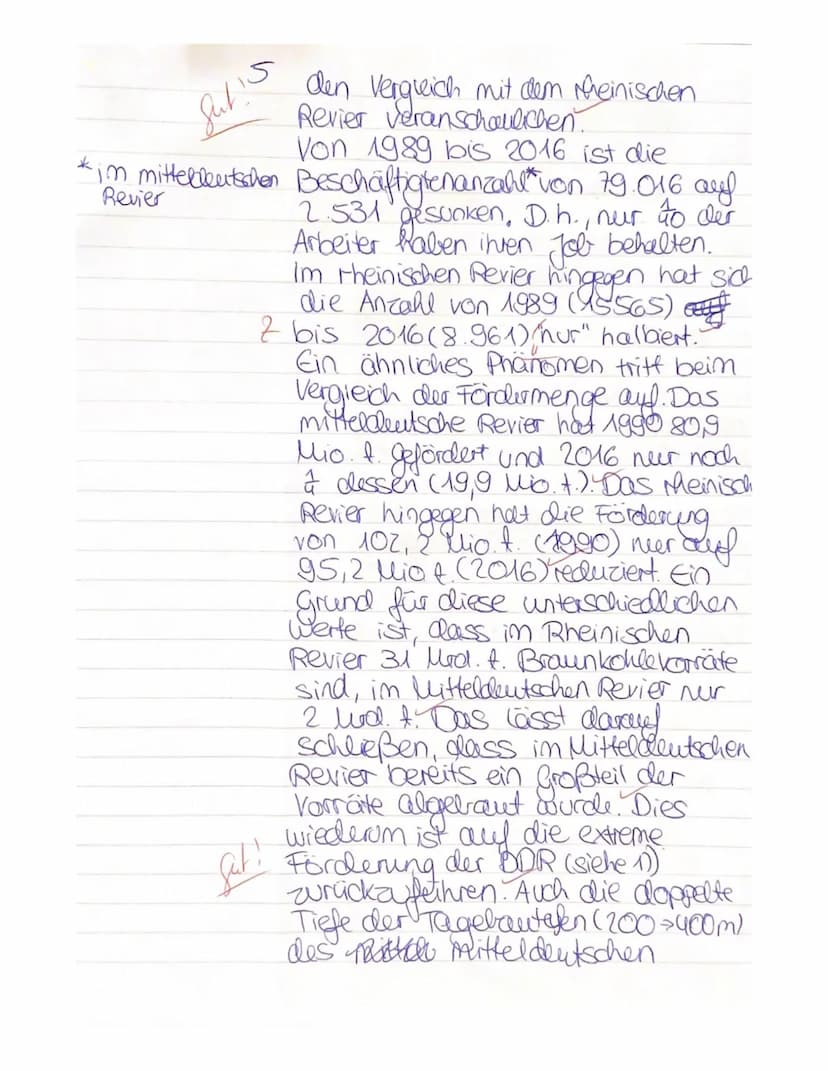 5
gut!
den Vergleich mit dem rheinischen
Revier veranschaulichen.
Von 1989 bis 2016 ist die
* im mitteldeutschen Revier
Beschäftigtenanzahl* von 79.016 auf
2.531 gesunken, D.h., nur der
Arbeiter haben ihren Job behalten.
Im rheinischen Revier hingegen hat sich
die Anzahl von 1989 (15565)
Z
bis 2016 (8.961) "nur" halbiert.
Ein ähnliches Phänomen tritt beim
Vergleich der Fördermenge auf. Das
mitteldeutsche Revier hat 1990 80,9
Mio. t. gefördert und 2016 nur noch
dessen (19,9 Mio. t.). Das rheinisch
Revier hingegen hat die Förderung
von 102,2 Mio. t. (1990) nur auf
95,2 Mio t. (2016) reduziert. Ein
Grund für diese unterschiedlichen
Werte ist, dass im Rheinischen
Revier 31 Mrd. t. Braunkohlevorräte
sind, im Mitteldeutschen Revier nur
2 Mrd. t. Das lässt darauf
schließen, dass im Mitteldeutschen
Revier bereits ein Großteil der
Vorräte abgebaut wurde. Dies
wiederum ist auf die extreme
gut!
Förderung der DDR (siehe 1)
zurückzuführen. Auch die doppelte
Tiefe der (200→400m)
des Mitteldeutschen